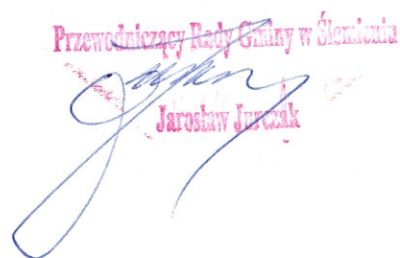 Przewodniczący Rady Gminy w Ślemieniu
Jarosław Jurczak